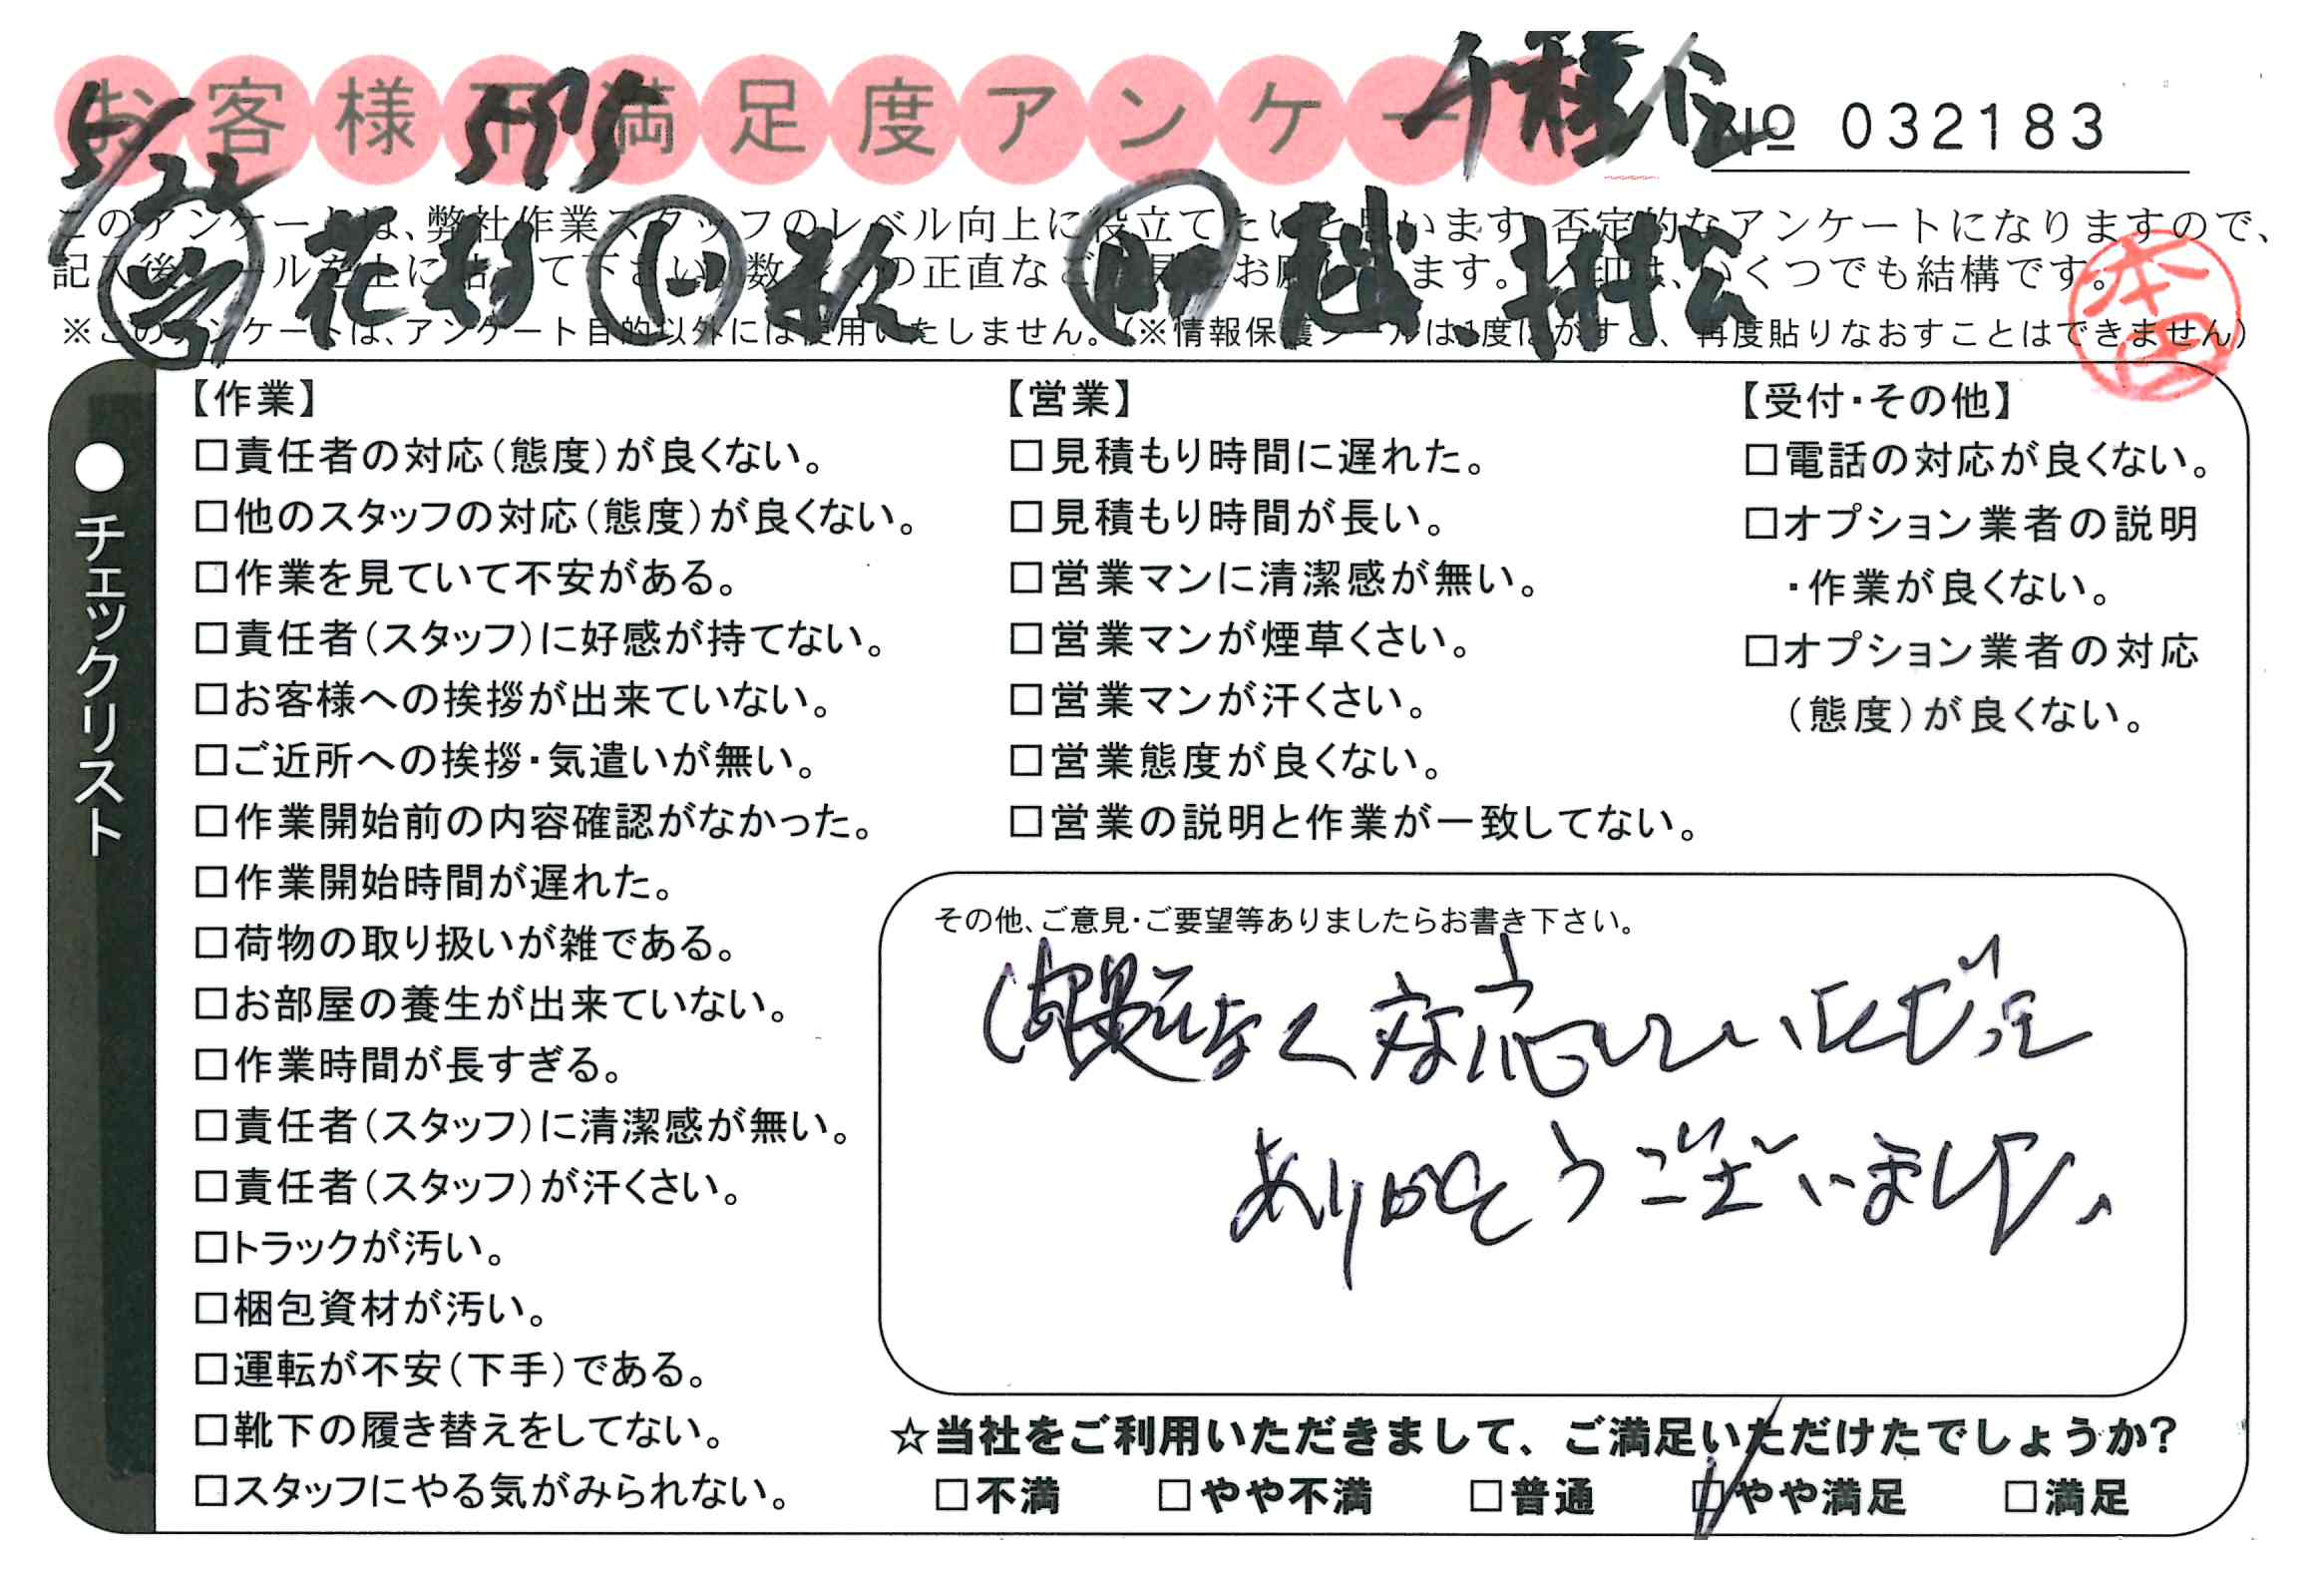 お客様不満足度アンケート
5/22
№ 032183
このアンケートは、弊社作業スタッフのレベル向上に役立てたいと思います。否定的なアンケートになりますので、
記入後シールを上に貼って下さい。数多くの正直なご意見をお願いします。レ印は、いくつでも結構です。
※このアンケートは、アンケート目的以外には使用いたしません。(※情報保護シールは1度はがすと、再度貼りなおすことはできません)
本田
●チェックリスト
【作業】
□責任者の対応(態度)が良くない。
□他のスタッフの対応(態度)が良くない。
□作業を見ていて不安がある。
□責任者(スタッフ)に好感が持てない。
□お客様への挨拶が出来ていない。
□ご近所への挨拶・気遣いが無い。
□作業開始前の内容確認がなかった。
□作業開始時間が遅れた。
□荷物の取り扱いが雑である。
□お部屋の養生が出来ていない。
□作業時間が長すぎる。
□責任者(スタッフ)に清潔感が無い。
□責任者(スタッフ)が汗くさい。
□トラックが汚い。
□梱包資材が汚い。
□運転が不安(下手)である。
□靴下の履き替えをしてない。
□スタッフにやる気がみられない。
【営業】
□見積もり時間に遅れた。
□見積もり時間が長い。
□営業マンに清潔感が無い。
□営業マンが煙草くさい。
□営業マンが汗くさい。
□営業態度が良くない。
□営業の説明と作業が一致してない。
【受付・その他】
□電話の対応が良くない。
□オプション業者の説明
・作業が良くない。
□オプション業者の対応
(態度)が良くない。
その他、ご意見・ご要望等ありましたらお書き下さい。
問題なく対応していただき
ありがとうございました。
☆当社をご利用いただきまして、ご満足いただけたでしょうか?
□不満 □やや不満 □普通 □やや満足 □満足